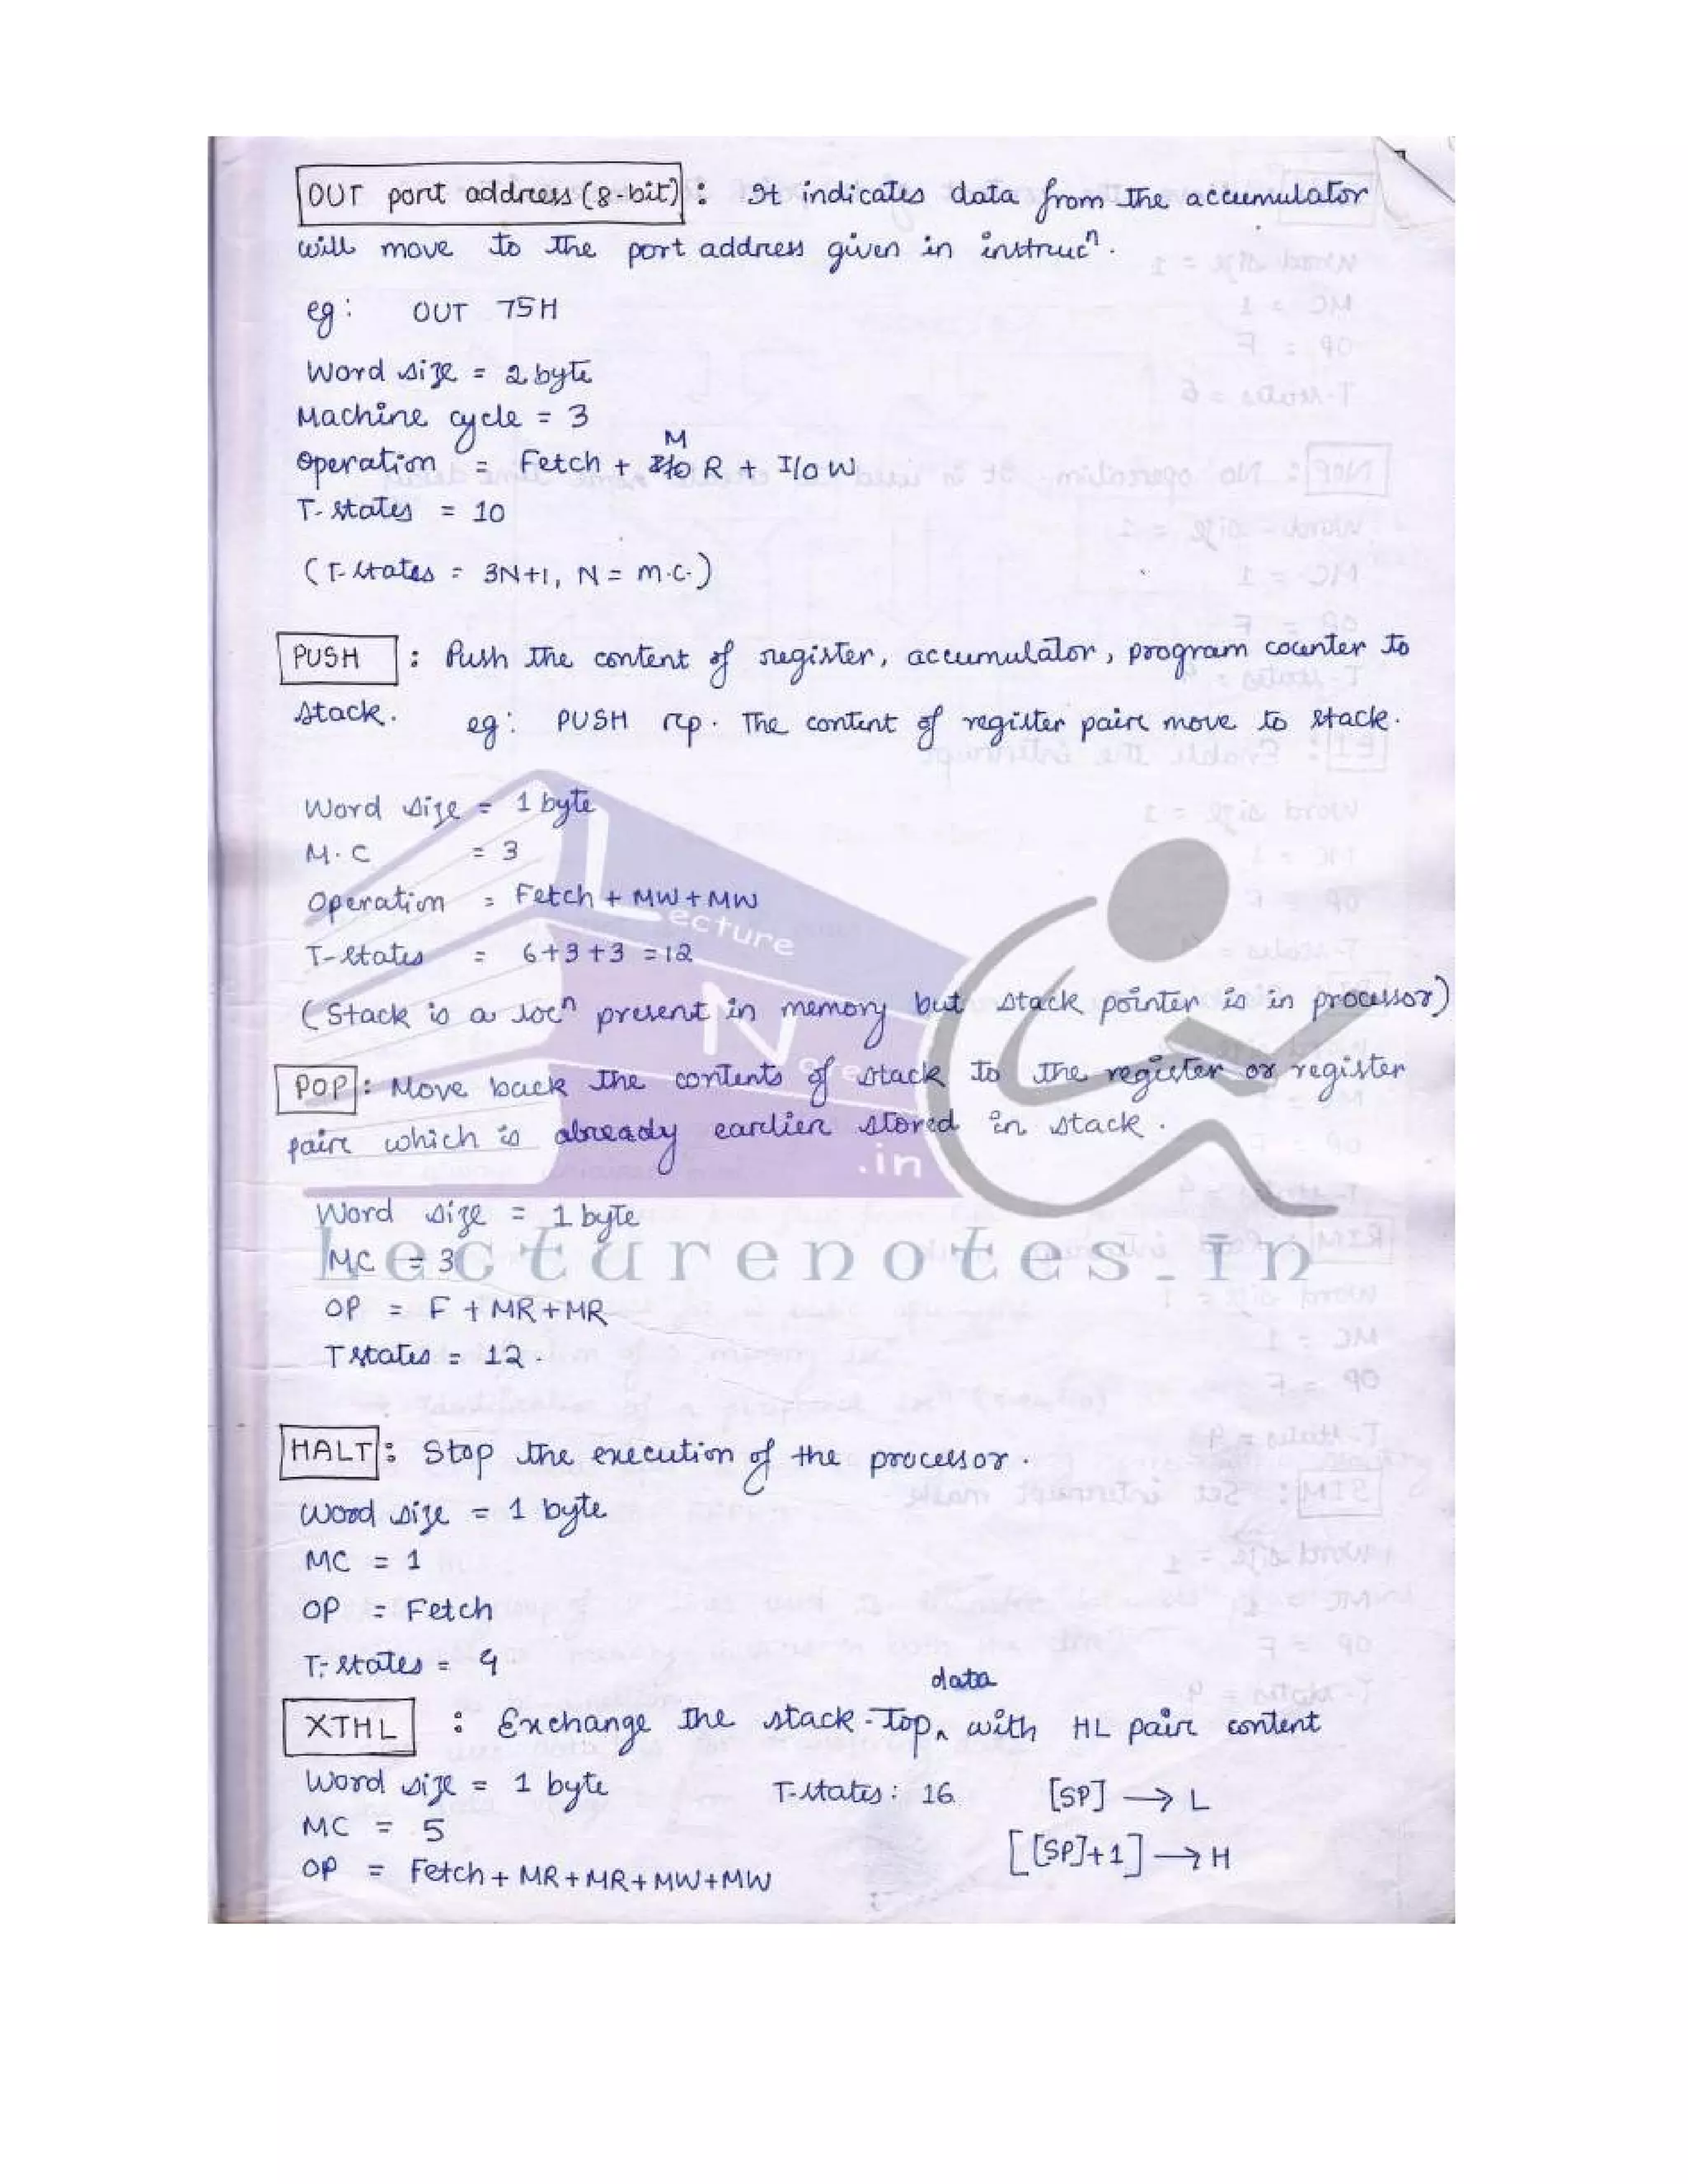 OUT port address (8-bit) : It indicates data from the accumulator
will move to the port address given in instrucⁿ.
eg: OUT 75H
Word size = 2 byte
Machine cycle = 3
M
Operation = Fetch + R + I/O W
T-states = 10
(T-states = 3N+1, N = m.c.)
PUSH : Push the content of register, accumulator, program counter to
stack. eg: PUSH rp. The content of register pair move to stack.
Word size = 1 byte
M.C = 3
Operation = Fetch + MW + MW
T-states = 6+3+3 = 12
(Stack is a locⁿ present in memory but stack pointer is in processor)
POP : Move back the contents of stack to the register or register
pair which is already earlier stored in stack.
Word size = 1 byte
MC = 3
OP = F + MR + MR
T states = 12.
HALT : Stop the execution of the processor.
Word size = 1 byte
MC = 1
OP = Fetch
T-states = 4
data
XTHL : Exchange the stack-top ^ with HL pair content
Word size = 1 byte T-states: 16 [SP] → L
MC = 5
[[SP]+1] → H
OP = Fetch + MR + MR + MW + MW
Lecture
Notes
.in
Lecturenotes.in